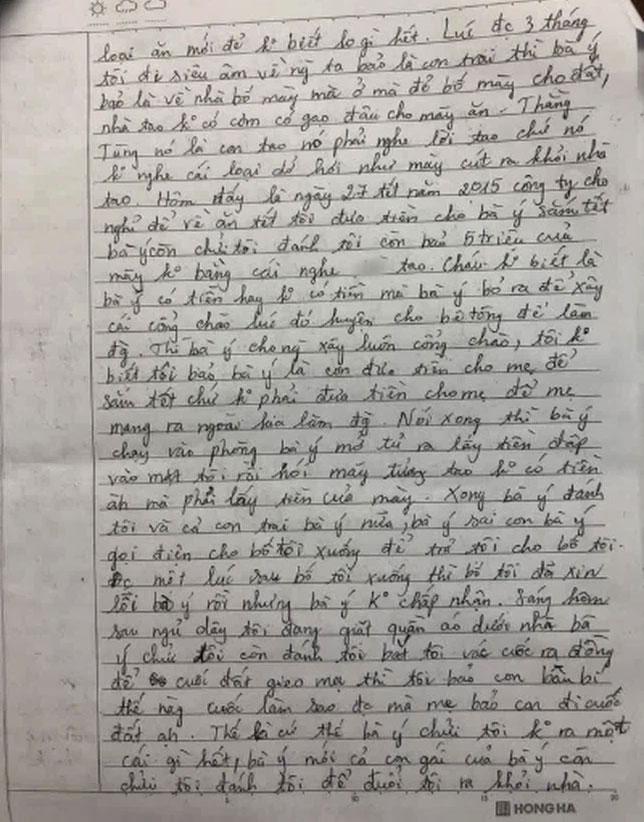 loại ăn mới đẻ k° biết lo gì hết. Lúc đc 3 tháng
tôi đi siêu âm về ng ta bảo là con trai thì bà ý
bảo là về nhà bố mày mà ở mà đẻ bố mày cho đất,
nhà tao k° có cơm có gạo đâu cho mày ăn. Thằng
Tùng nó là con tao nó phải nghe lời tao chứ nó
k° nghe cái loại dở hơi như mày cút ra khỏi nhà
tao. Hôm đấy là ngày 27 tết năm 2015 công ty cho
nghỉ để về ăn tết tôi đưa tiền cho bà ý sắm tết
bà ý còn chửi tôi đánh tôi còn bảo 5 triệu của
mày k° bằng cái nghe tao. Cháu k° biết là
bà ý có tiền hay k° có tiền mà bà ý bỏ ra để xây
cái cổng chào lúc đó huyện cho bê tông để làm
đg. Thì bà ý cho ng xây luôn cổng chào, tôi k°
biết tôi bảo bà ý là con đưa tiền cho mẹ để
sắm tết chứ k° phải đưa tiền cho mẹ để mẹ
mang ra ngoài kia làm đg. Nói xong thì bà ý
chạy vào phòng bà ý mở tủ ra lấy tiền đập
vào mặt tôi rồi hỏi mày tưởng tao k° có tiền
ah mà phải lấy tiền của mày. Xong bà ý đánh
tôi và cả con trai bà ý nữa, bà ý sai con bà ý
gọi điện cho bố tôi xuống để trả tôi cho bố tôi.
Đc một lúc sau bố tôi xuống thì bố tôi đã xin
lỗi bà ý rồi nhưng bà ý k° chấp nhận. Sáng hôm
sau ngủ dậy tôi đang giặt quần áo dưới nhà bà
ý chửi tôi còn đánh tôi bắt tôi vác cuốc ra đồng
để cuốc đất gieo mạ thì tôi bảo con bầu bí
thế này cuốc làm sao đc mà mẹ bảo con đi cuốc
đất ah. Thế là cứ thế bà ý chửi tôi k° ra một
cái gì hết, bà ý mới cả con gái của bà ý còn
chửi tôi đánh tôi để đuổi tôi ra khỏi nhà.
HONG HA